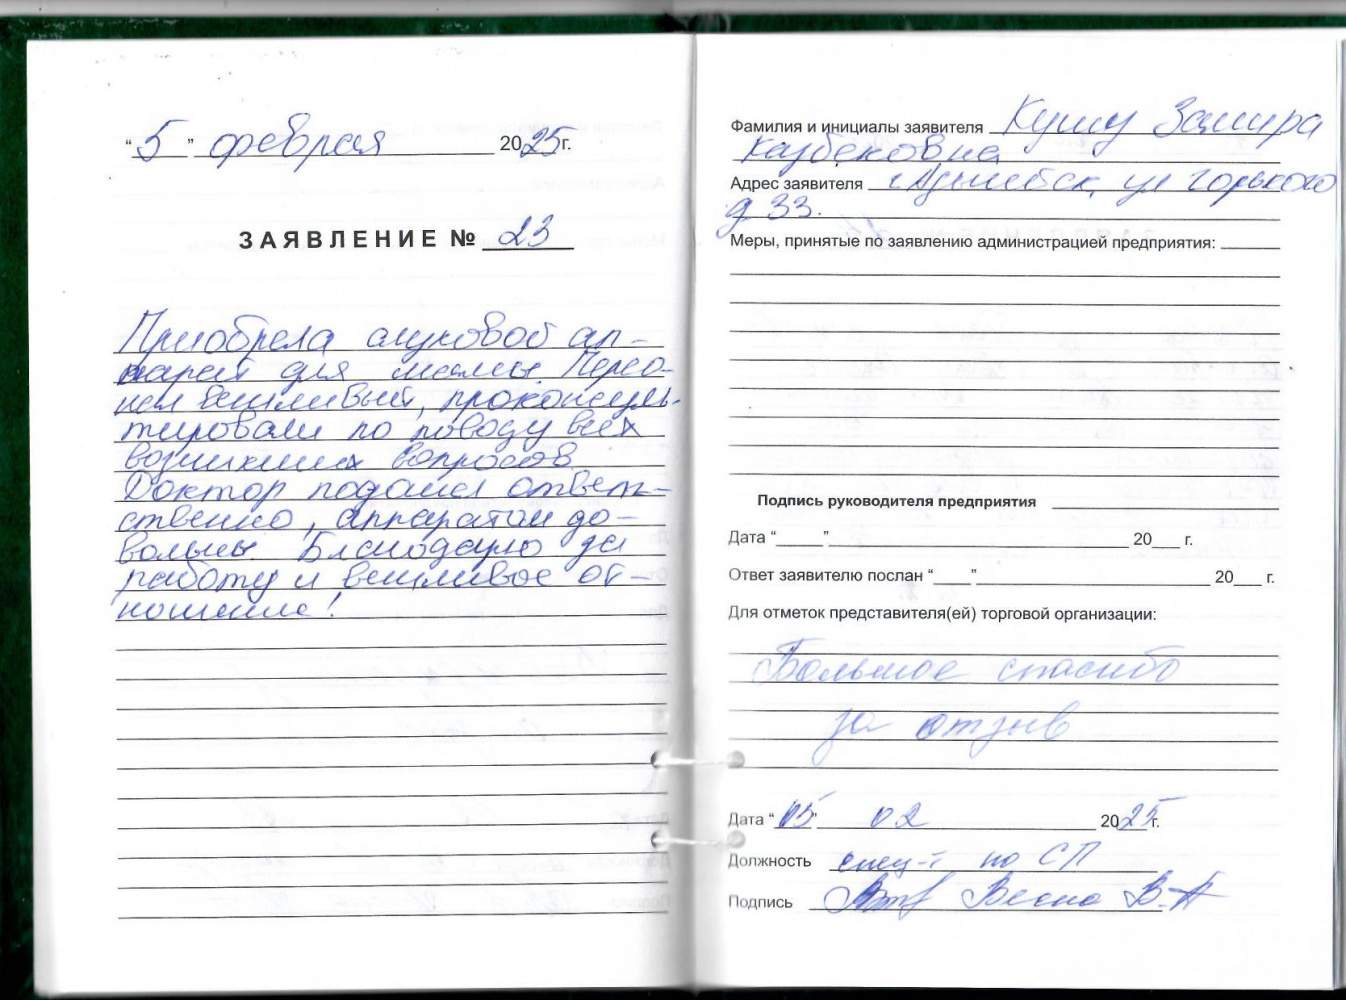 "5" феврая 2025г.
ЗАЯВЛЕНИЕ № 23
Приобрела слуховой ап-
парат для мамы. Персо-
нал вежливый, проконсуль-
тировали по поводу всех
возникших вопросов.
Доктор подошел ответ-
ственно, аппаратом до-
вольны. Благодарю за
работу и вежливое от-
ношение!
Фамилия и инициалы заявителя Кушу Замира
Казбековна
Адрес заявителя г Адыгейск, ул Горького
д 33.
Меры, принятые по заявлению администрацией предприятия:
Подпись руководителя предприятия
Дата “ ” 20 г.
Ответ заявителю послан “ ” 20 г.
Для отметок представителя(ей) торговой организации:
Большое спасибо
за отзыв
Дата “05” 02 2025г.
Должность спец-т по СП
Подпись Весна В.А